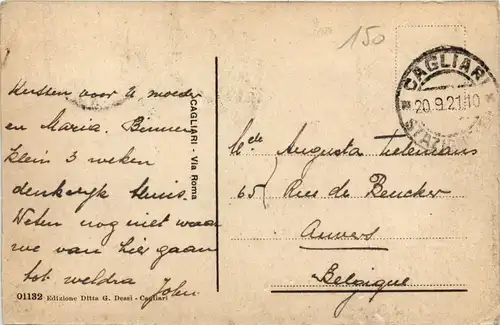 150
CAGLIARI
20.9.21.10
STAZ
Kussen voor te moeder
en Maria. Binnen
klein 3 weken
denkerijk thuis.
Weten nog niet waar
we van hier gaan
tot weldra John
CAGLIARI - Via Roma
Mde Augusta Tielemans
65 Rue de Beucker
Anvers
Belgique
01132 Edizione Ditta G. Dessi - Cagliari